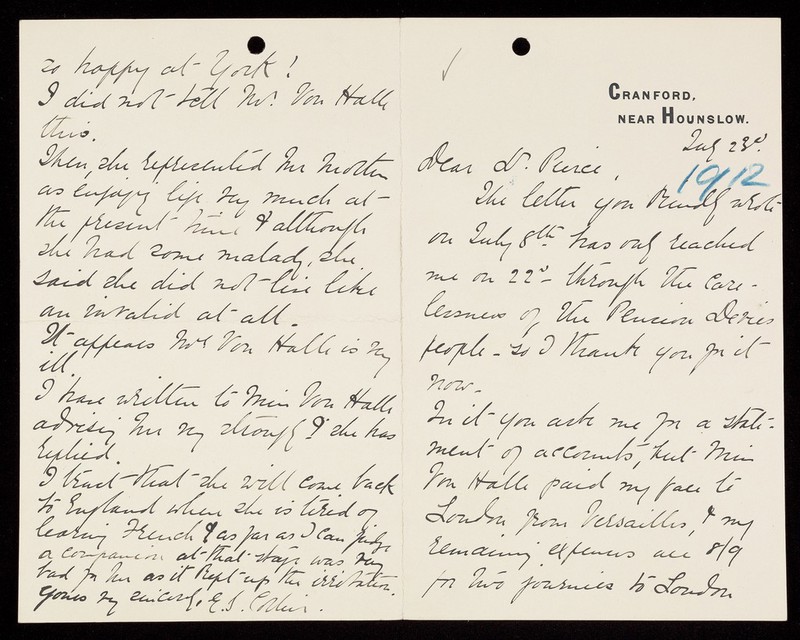 so happy at York!
I did not tell Mrs. Von Halle
this.
Then, she represented her Mother
as enjoying life very much at
the present time & although
she had some malady, she
said she did not live like
an invalid at all.
It appears Mrs Von Halle is very
ill.
I have written to Miss Von Halle
advising her very strongly & she has
replied.
I trust that she will come back
to England when she is tired of
learning French & as far as I can judge
a companion at that stage was very
bad for her as it kept up the irritation.
Yours very sincerely, E.S.
CRANFORD,
NEAR HOUNSLOW.
July 23rd.
1912
Dear Dr. Pierce,
The letter you kindly wrote
on July 8th has only reached
me on 22d - through the care-
lessness of the Pension
people - so I thank you for it
now.
In it you ask me for a state-
ment of accounts, but Miss
Von Halle paid my fare to
London from Versailles, & my
remaining expenses are 8/9
for two journies to London